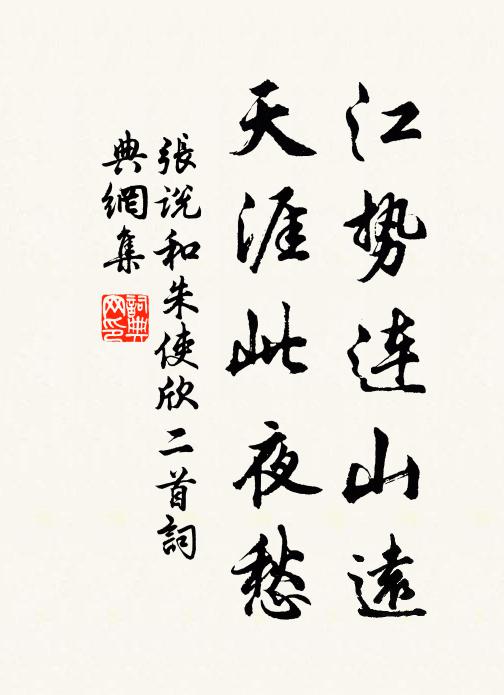 江势连山遠
天涯此夜愁
張说和朱使欣二首詞
典網集
詞典网印